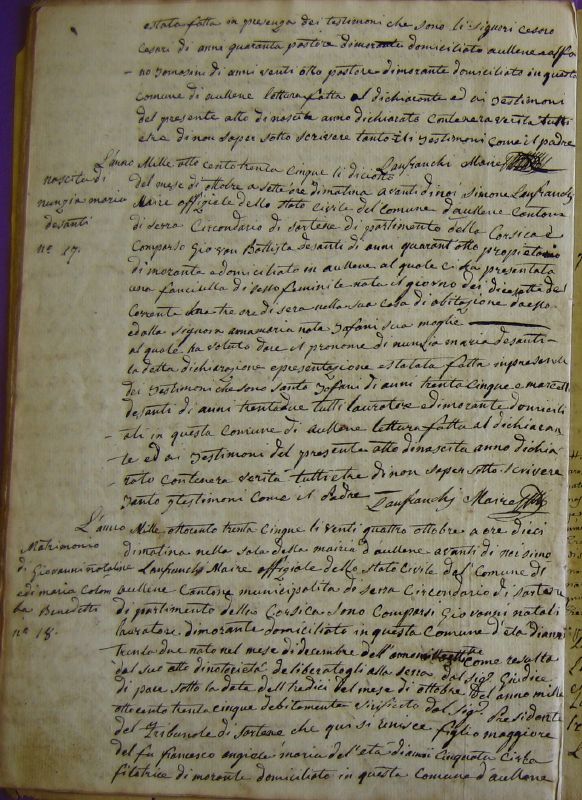 e stata fatta in presenza dei testimoni che sono li signori cesoro
Cesari di anni quaranta pastore dimorante domiciliato aullene e
no di anni venti otto pastore dimorante domiciliato in questa
Comune di aullene lettura fatta al dichiarante ed ai Testimoni
del presente atto di nascita anno dichiarato Contenera verita tutti
e tre di non saper sotto scrivere tanto li Testimoni come il padre
Lanfranchi Maire
nascita di
nunzia maria
desanti
nº 17.
L'anno Mille otto cento trenta Cinque li
del mese di ottobre a sette ore di matina avanti di noi Simone Lanfranchi
Maire offiziale dello stato Civile del Comune d'aullene Cantone
di serra Circondario di Sartene di partimento della Corsica è
Comparso Giovan Battista desanti di anni quarant otto propietario
dimorante e domiciliato in aullene al quale ci ha presentata
una fanciulla di sesso feminile nata il giorno dei dicasette del
Corrente tre ore di sera nella sua Casa di abitazione da esso
e dalla signora annamaria nata Tafani sua moglie
al quale ha voluto dare il pronome di nunzia maria desanti
la detta dichiarazione e presentazione e stata fatta in presenza
dei Testimoni che sono Santo Tafani di anni trenta Cinque e
desanti di anni trentadue tutti lauratore e dimorante domicili
ati in questa Comune di aullene lettura fatta al dichiaran
te ed ai Testimoni del presente atto di nascita anno dichia
rato Contenera verità tutti e tre di non saper sotto scrivere
Tanto Testimoni Come il Padre Lanfranchi Maire
Matrimonio
di Giovanni natali
e di maria Colom
ba Benedetti
nº 18.
L'anno Mille ottocento trenta Cinque li venti quattro ottobre a ore dieci
di matina nella Sala della mairia d'aullene avanti di noi simo
ne Lanfranchi Maire offiziale dello stato Civile del Comune d'
aullene Cantone municipalita di serra Circondario di Sartene
di partimento della Corsica Sono Comparsi Giovanni natali
lauratore dimorante domiciliato in questa Comune d'eta di anni
trenta due nato nel mese di decembre dell'anno Come resulta
dal suo atto di notorietà deliberatogli alla serra dal sigr. Giudice
di pace sotto la data dell tredici del mese di ottobre del anno mille
ottocento trenta cinque debitamente dal sigr. Presidente
del Tribunale di Sartene che qui si unisce figlio maggiore
del fu francesco maria del'età di anni Cinquata Circa
filatrice dimorante domiciliato in questa Comune d'aullene